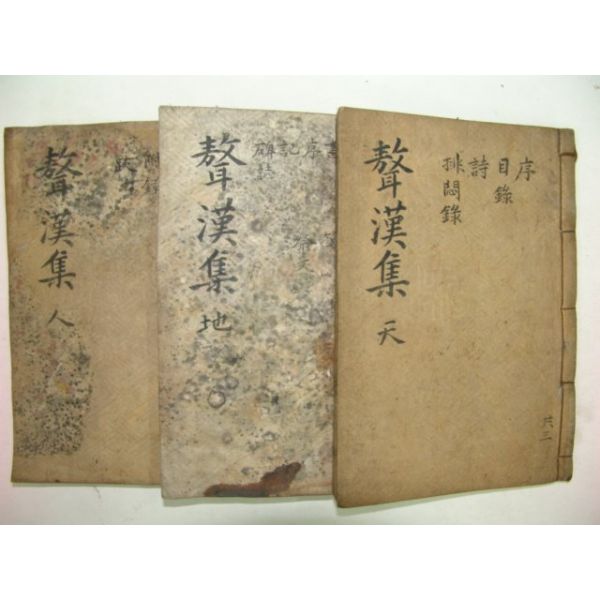 序
目錄
詩
排悶錄
聱漢集 天
共三
序
記
碑誌
祭文
聱漢集 地
聱漢集 人